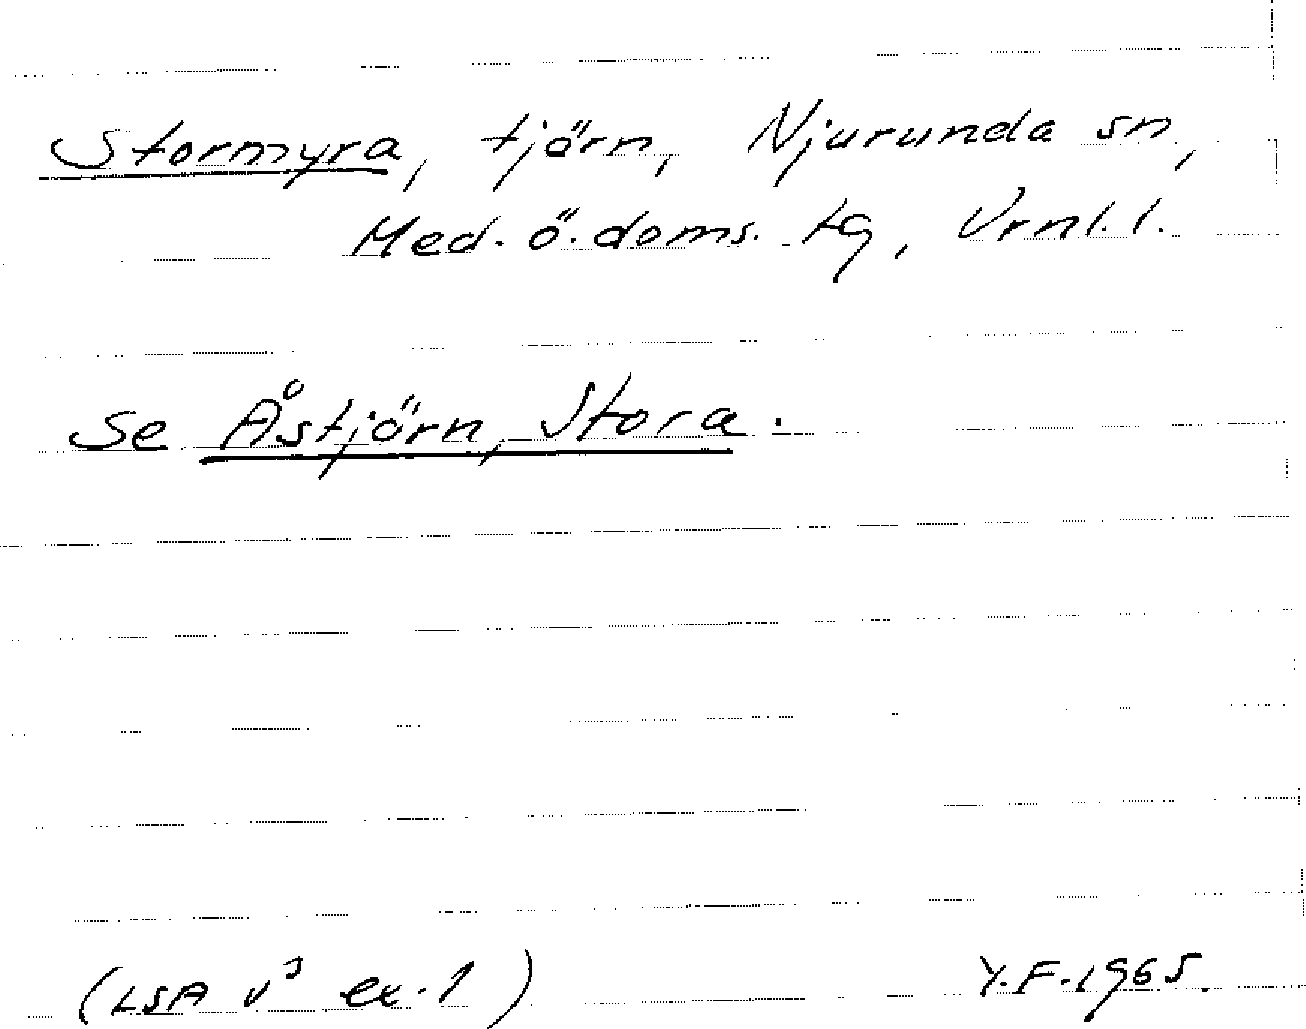 Stormyra, tjörn, Njurunda sn,
Med. ö. doms. tg, Vrnl. l.
Se Åstjörn, Stora.
(LSA v³ ex. 1) Y.F. 1965.